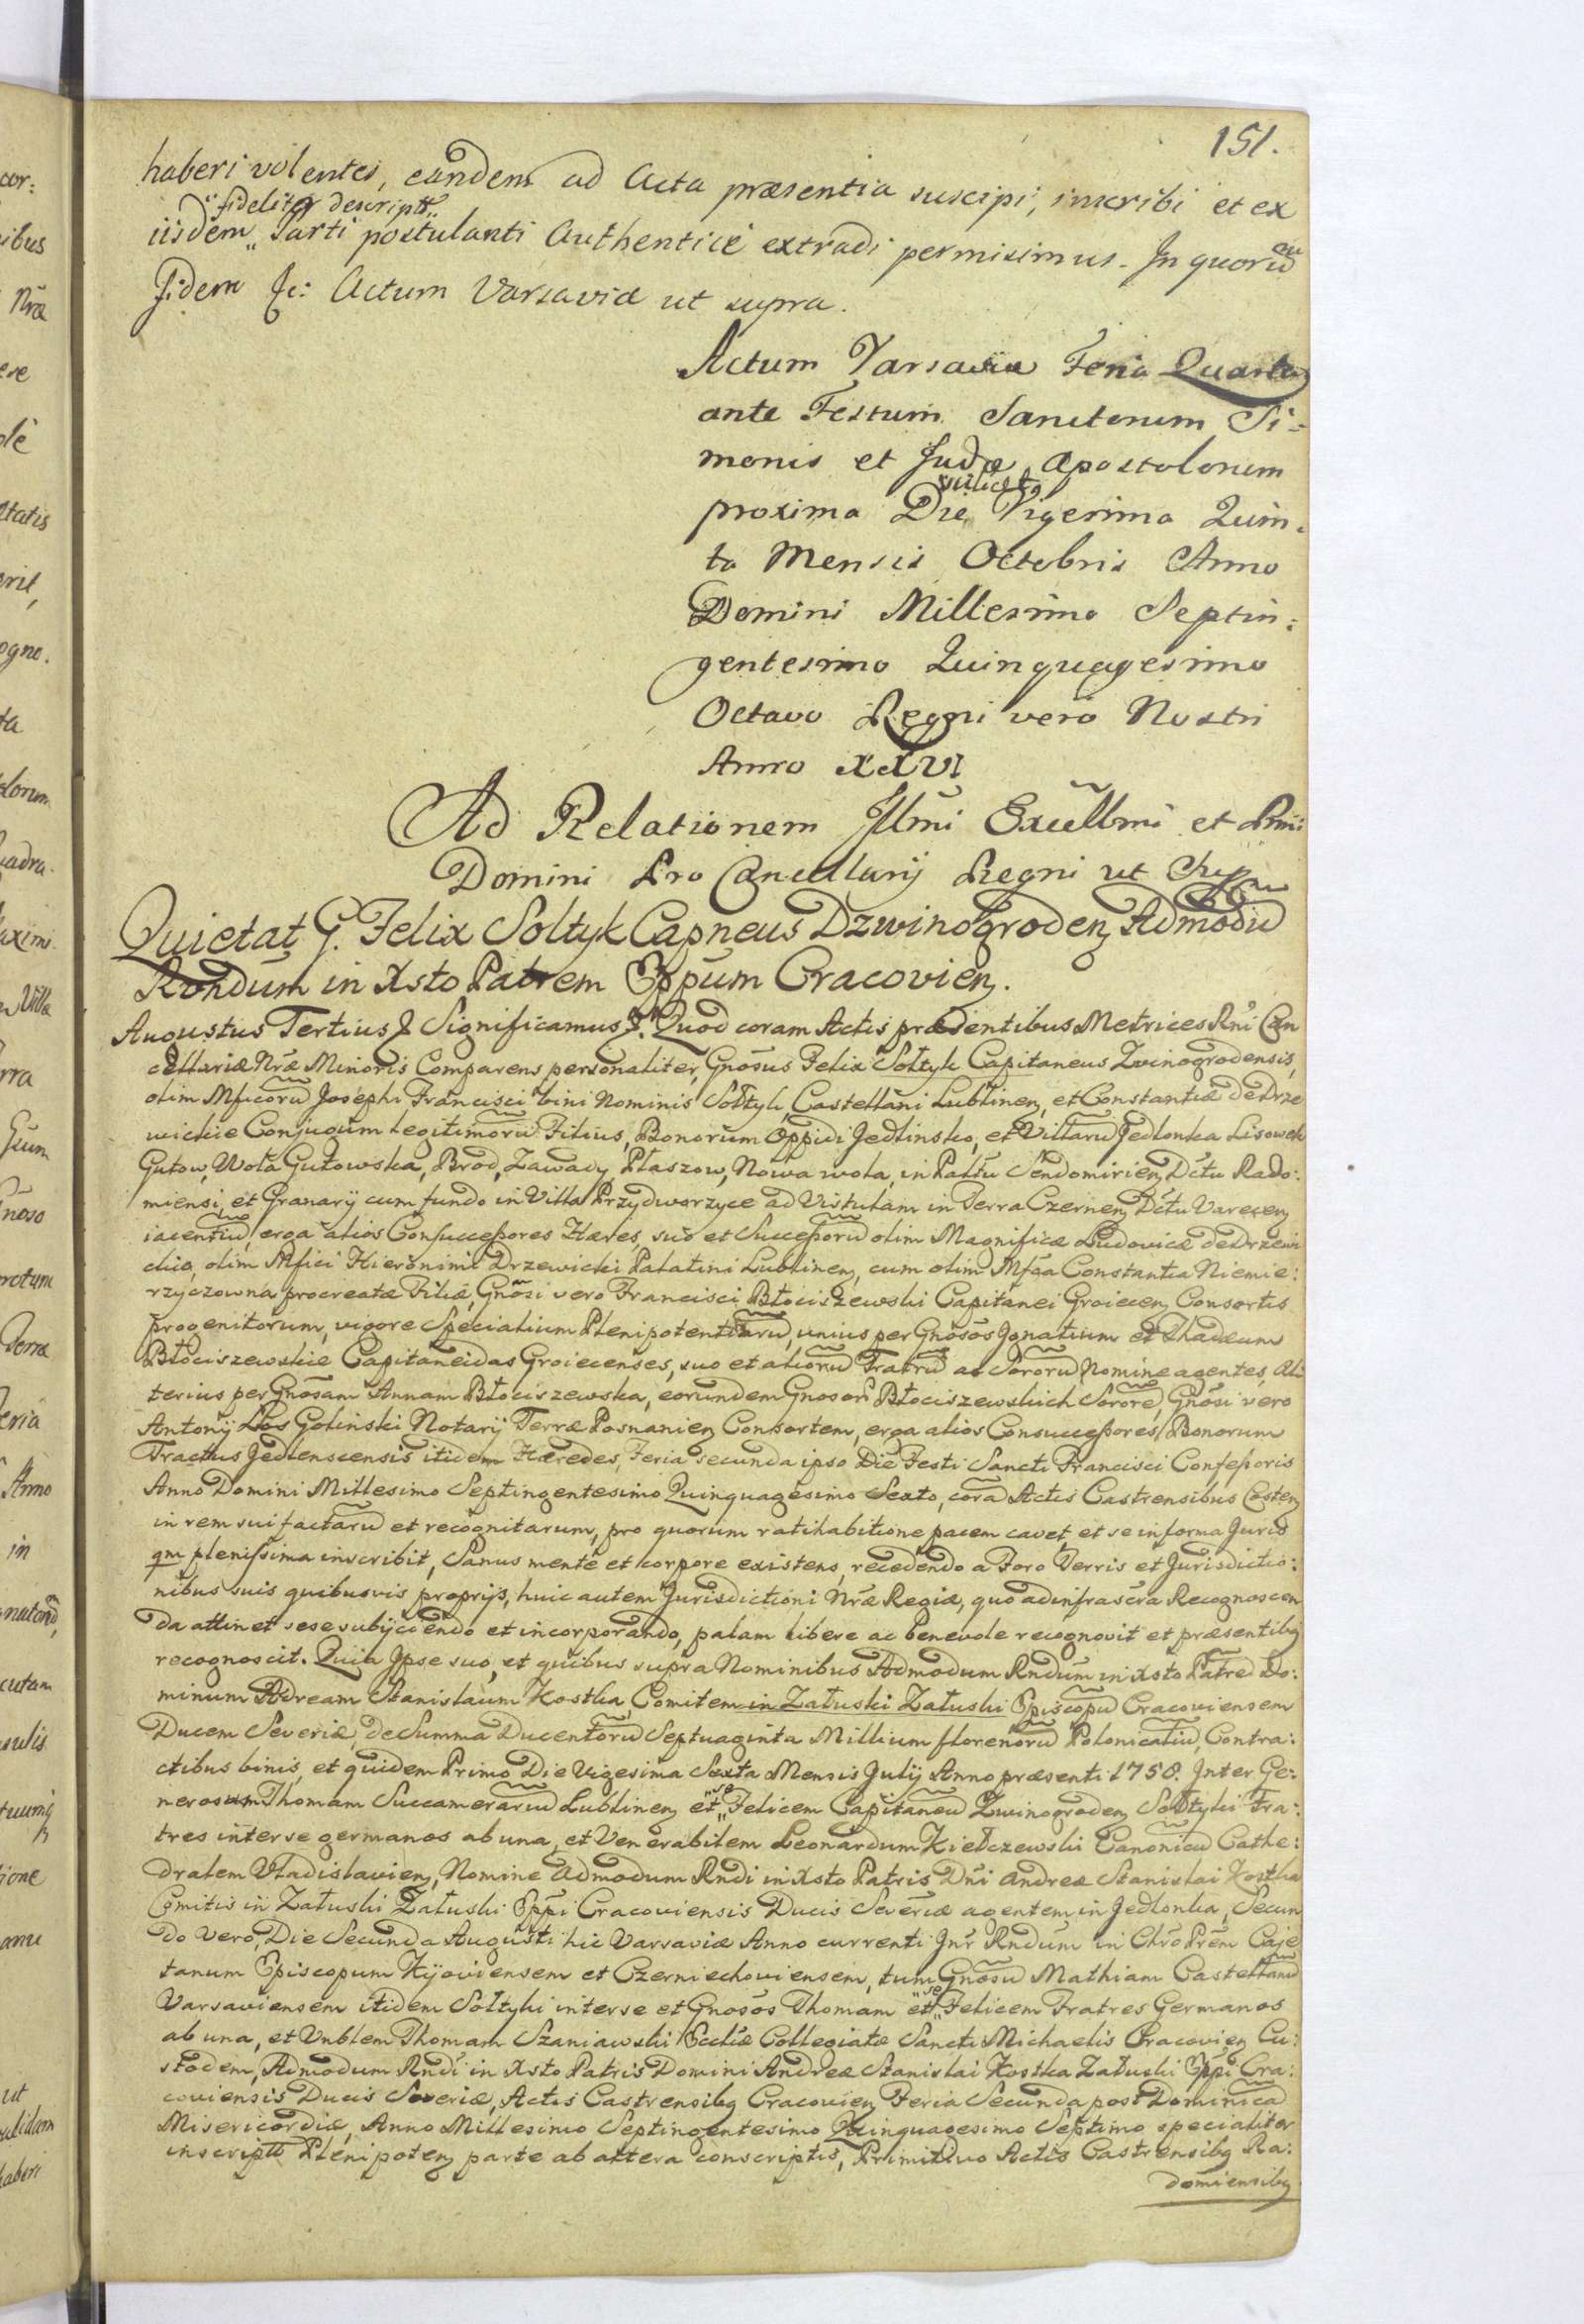 151.
haberi volentes, eandem ad Acta præsentia suscipi, inscribi et ex
fideliter descriptt
iisdem Parti postulanti Authenticè extradi permisimus. In quorũ
fidem &c: Actum Varsaviæ ut supra.
Actum Varsaviæ Feria Quarta
ante Festum Sanctorum Si=
monis et Judæ Apostolorum
scilicet
proxima Die Vigesima Quin=
ta Mensis Octobris Anno
Domini Millesimo Septin=
gentesimo Quinquagesimo
Octavo Regni vero Nostri
Anno XXVI
Ad Relationem Illm̃i Excellm̃i et Rm̃i
Domini Pro Cancellarij Regni ut
Quietat G. Felix Soltyk Capneus Dzwinogroden Admodũ
Rõndum in Xsto Patrem Eppum Cracovien.
Augustus Tertius & Significamus &. Quod coram Actis præsentibus Metrices Rñi Can
cellariæ Nr̃æ Minoris Comparens personaliter, Gnõsus Felix Sołtyk Capitaneus Zwinogrodensis,
olim Mficorũ Josephi Francisci bini Nominis Sołtyk, Castellani Lublinen, et Constantiæ de Drze
wickie Conjugum legitimorũ Filius, Bonorum Oppidi Jedlinsko, et Villarũ Jedlonka Lisowek
Gutow, Wola Gutowska, Brod, Zawady, Płaszow, Nowa wola, in Palttu Sendomirien Dctu Rado:
miensi, et Granarij cum fundo in Villa Przydworzyce ad Vistulam in Terra Czernen Dctu Varecen
iacentiũ, erga alios Consuccessores Hæres, suo et Successorũ olim Magnificæ Ludovicæ de Drzewi
ckie, olim Mfici Hieronimi Drzewicki Palatini Lublinen, cum olim Mfca Constantia Niemie:
rzyczowna procreatæ Filiæ, Gnõsi vero Francisci Błociszewski Capitanei Groiecen Consortis
progenitorum, vigore Specialium Plenipotentiarũ, unius per Gnosõs Ignatium et Thadeum
Błociszewskie Capitaneidas Groiecenses, suo et aliorũ Fratrũ ac Sororũ Nomine agentes, Al
terius per Gnõsam Annam Błociszewska, eorundem Gnosor̃ Błociszewskich Sororẽ, Gnõsi vero
Antonij Les Goliński Notarij Terræ Posnanien Consortem, erga alios Consuccessores Bonorum
Tractus Jedlenscensis itidem Hæredes, Feria secunda ipso Die Festi Sancti Francisci Confessoris
Anno Domini Millesimo Septingentesimo Quinquagesimo Sexto, corã Actis Castrensibus Costen
in rem sui factarũ et recognitarum, pro quorum ratihabitione pacem cavet, et se in forma Juris
qm plenissima inscribit, Sanus mente et corpore existens, recedendo a Foro Terris et Jurisdictio:
nibus suis quibusvis proprijs, huic autem Jurisdictioni Nr̃æ Regiæ, quo ad infrascr̃a Recognoscen
da attinet sese subijciendo et incorporando, palam libere ac benevole recognovit et præsentibq
recognoscit. Quia Ipse suo, et quibus supra Nominibus Admodum Rndũm in Xsto Patrẽ Do:
minum Adream Stanislaum Kostka Comitem in Załuski Załuski Episcopũ Cracoviensem
Ducem Severiæ, de Summa Ducentorũ Septuaginta Millium florenorũ Polonicaliũ, Contra:
ctibus binis, et quidem Primo Die Vigesima Sexta Mensis Julij Anno præsenti 1758. Inter Ge:
nerosum Thomam Succamerariũ Lublinen et se Felicem Capitaneũ Zwinogroden Soltyki Fra:
tres inter se germanos ab una, et Venerabilem Leonardum Kiełczewski Canonicũ Cathe:
dralem Vladislavien, Nomine Admodum Rndi in Xsto Patris Dñi Andreæ Stanislai Kostka
Comitis in Załuski Załuski Eppi Cracoviensis Ducis Severiæ agentem in Jedlonka, Secun
do Vero, Die Secunda Augusti hic Varsaviæ Anno currenti Intr Rndũm in Chro Prẽm Caje
tanum Episcopum Kijoviensem et Czerniechoviensem, tum Gnõsũ Mathiam Castellanũ
Varsaviensem itidem Soltyki inter se et Gnosõs Thomam et se Felicem Fratres Germanos
ab una, et Vnblem Thomam Szaniawski Ecclæ Collegiatæ Sancti Michaelis Cracovien Cu:
stodem, Admodum Rndi in Xsto Patris Domini Andreæ Stanislai Kostka Załuski Eppi Cra:
coviensis Ducis Severiæ, Actis Castrensibq Cracovien Feria Secunda post Dominicã
Misericordiæ, Anno Millesimo Septingentesimo Quinquagesimo Septimo specialiter
inscriptt Plenipoten parte ab altera conscriptis, Primitivo Actis Castrensibq Ra:
domiensibq